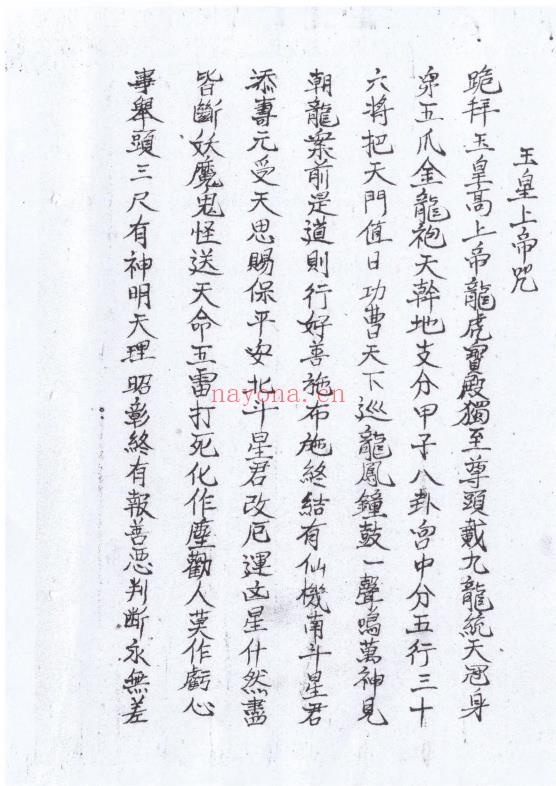 玉皇上帝咒
跪拜玉皇高上帝龍虎寶殿獨至尊頭戴九龍統天冠身
穿五爪金龍袍天幹地支分甲子八卦宮中分五行三十
六将把天門值日功曹天下巡龍鳳鐘鼓一聲鳴萬神見
朝龍案前是道則行好善施布施終結有仙機南斗星君
添壽元受天思賜保平安北斗星君改厄運凶星什然盡
皆斷妖魔鬼怪送天命五雷打死化作塵勸人莫作虧心
事舉頭三尺有神明天理昭彰終有報善惡判断永無差
nayona.cn